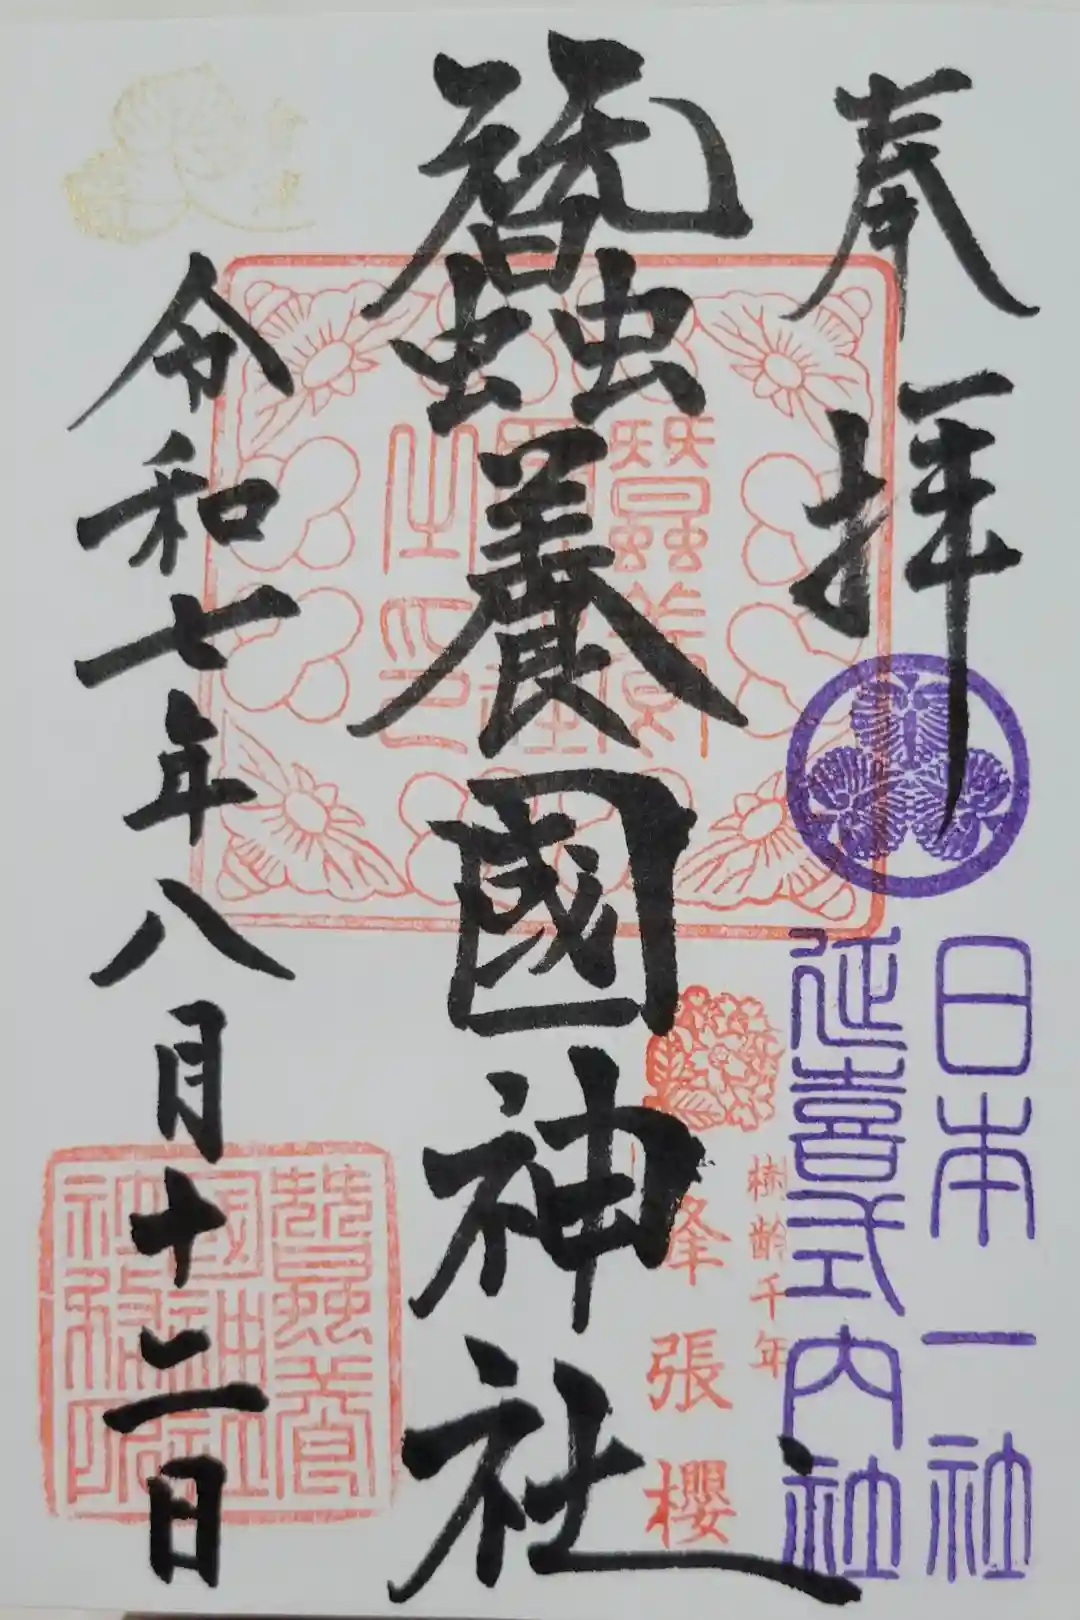 奉拝
日本一社
延喜式内社
樹齢千年
峰張櫻
蠶養國神社
蠶養國神社
令和七年八月十二日